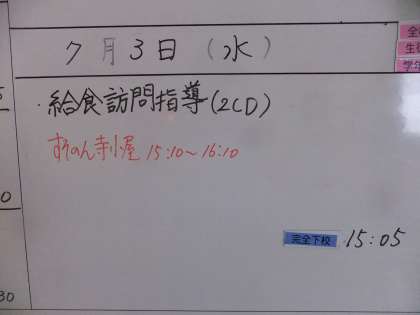 7月3日(水)
・給食訪問指導(2CD)
すそのん寺小屋 15:10~16:10
完全下校 15:05
全
生徒
学年
0
30